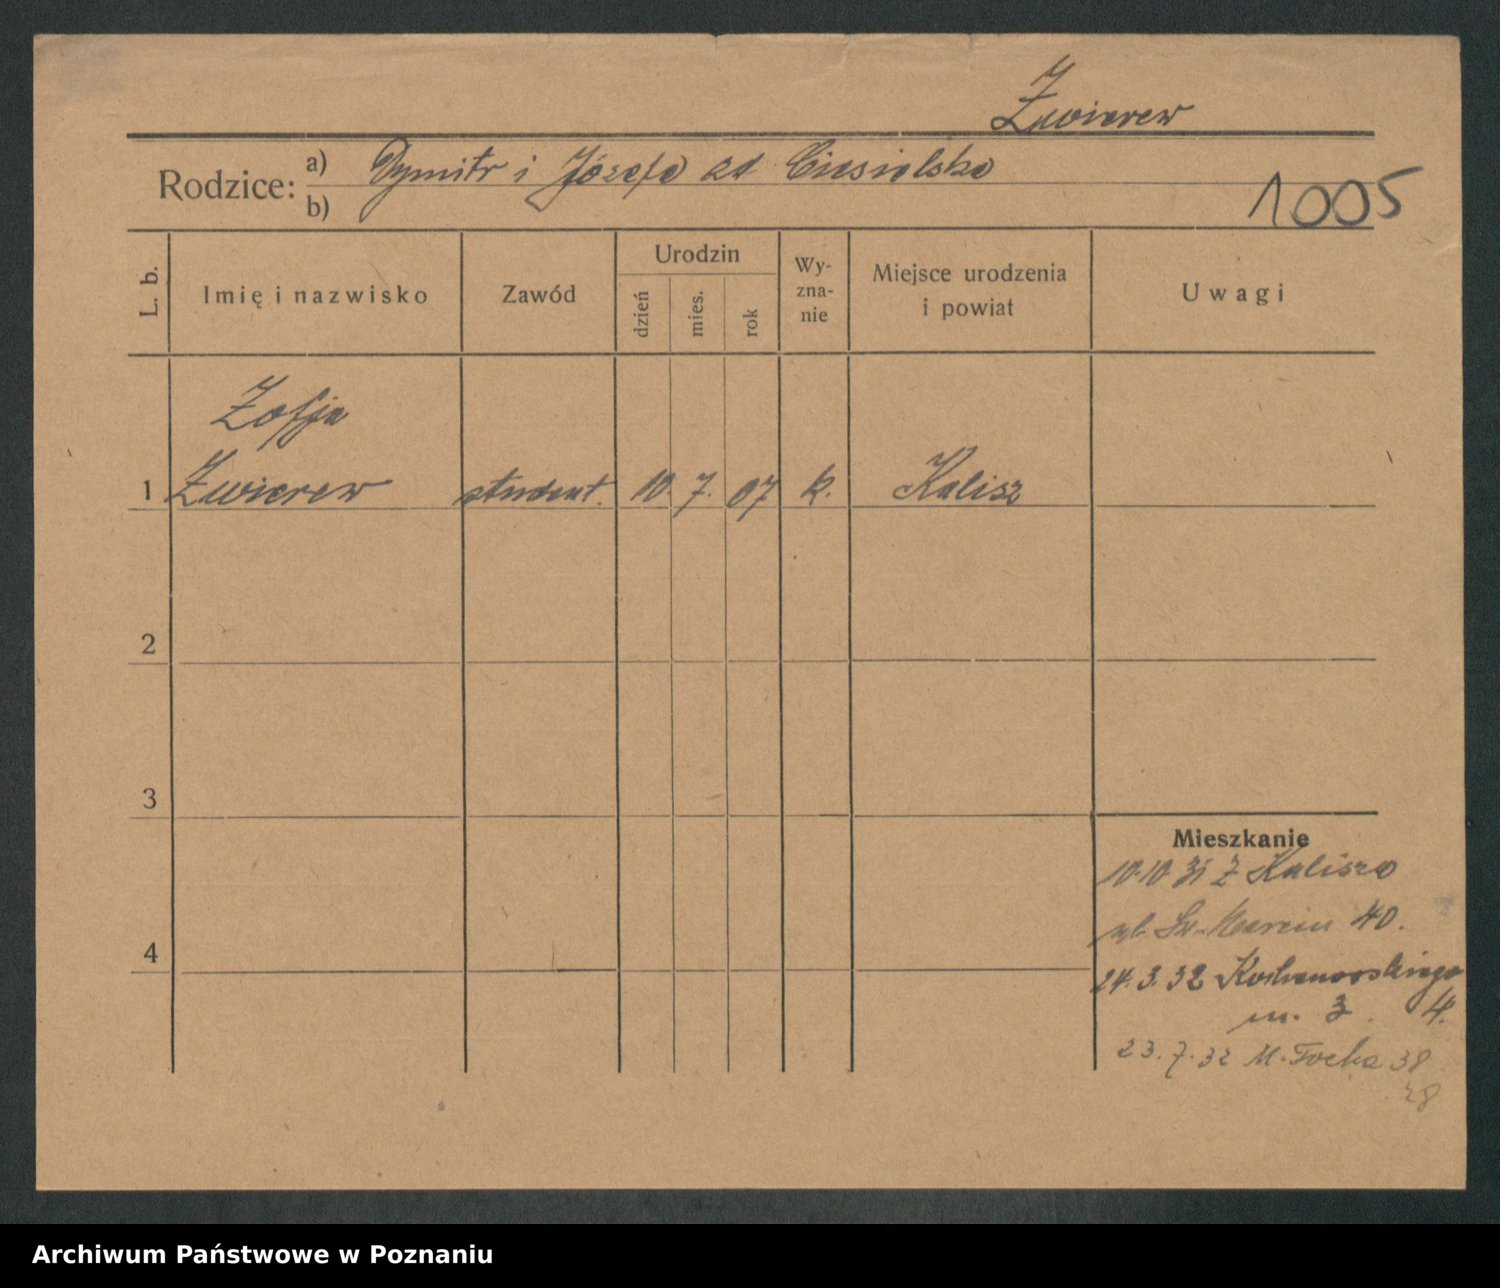 Zwierew
Rodzice: a) Dymitr i Józefa zd Ciesielska
b)
1005
L. b. Imię i nazwisko Zawód Urodzin dzień mies. rok Wy-zna-nie Miejsce urodzenia i powiat Uwagi
Zofja
1 Zwierew student. 10. 7. 07 k. Kalisz
2
3
Mieszkanie
10.10.31 z Kalisza
Św. Marcin 40.
4
24.3.32 Kochanowskiego
m. 3. 4.
23.7.32 M. Focha 38
28
Archiwum Państwowe w Poznaniu